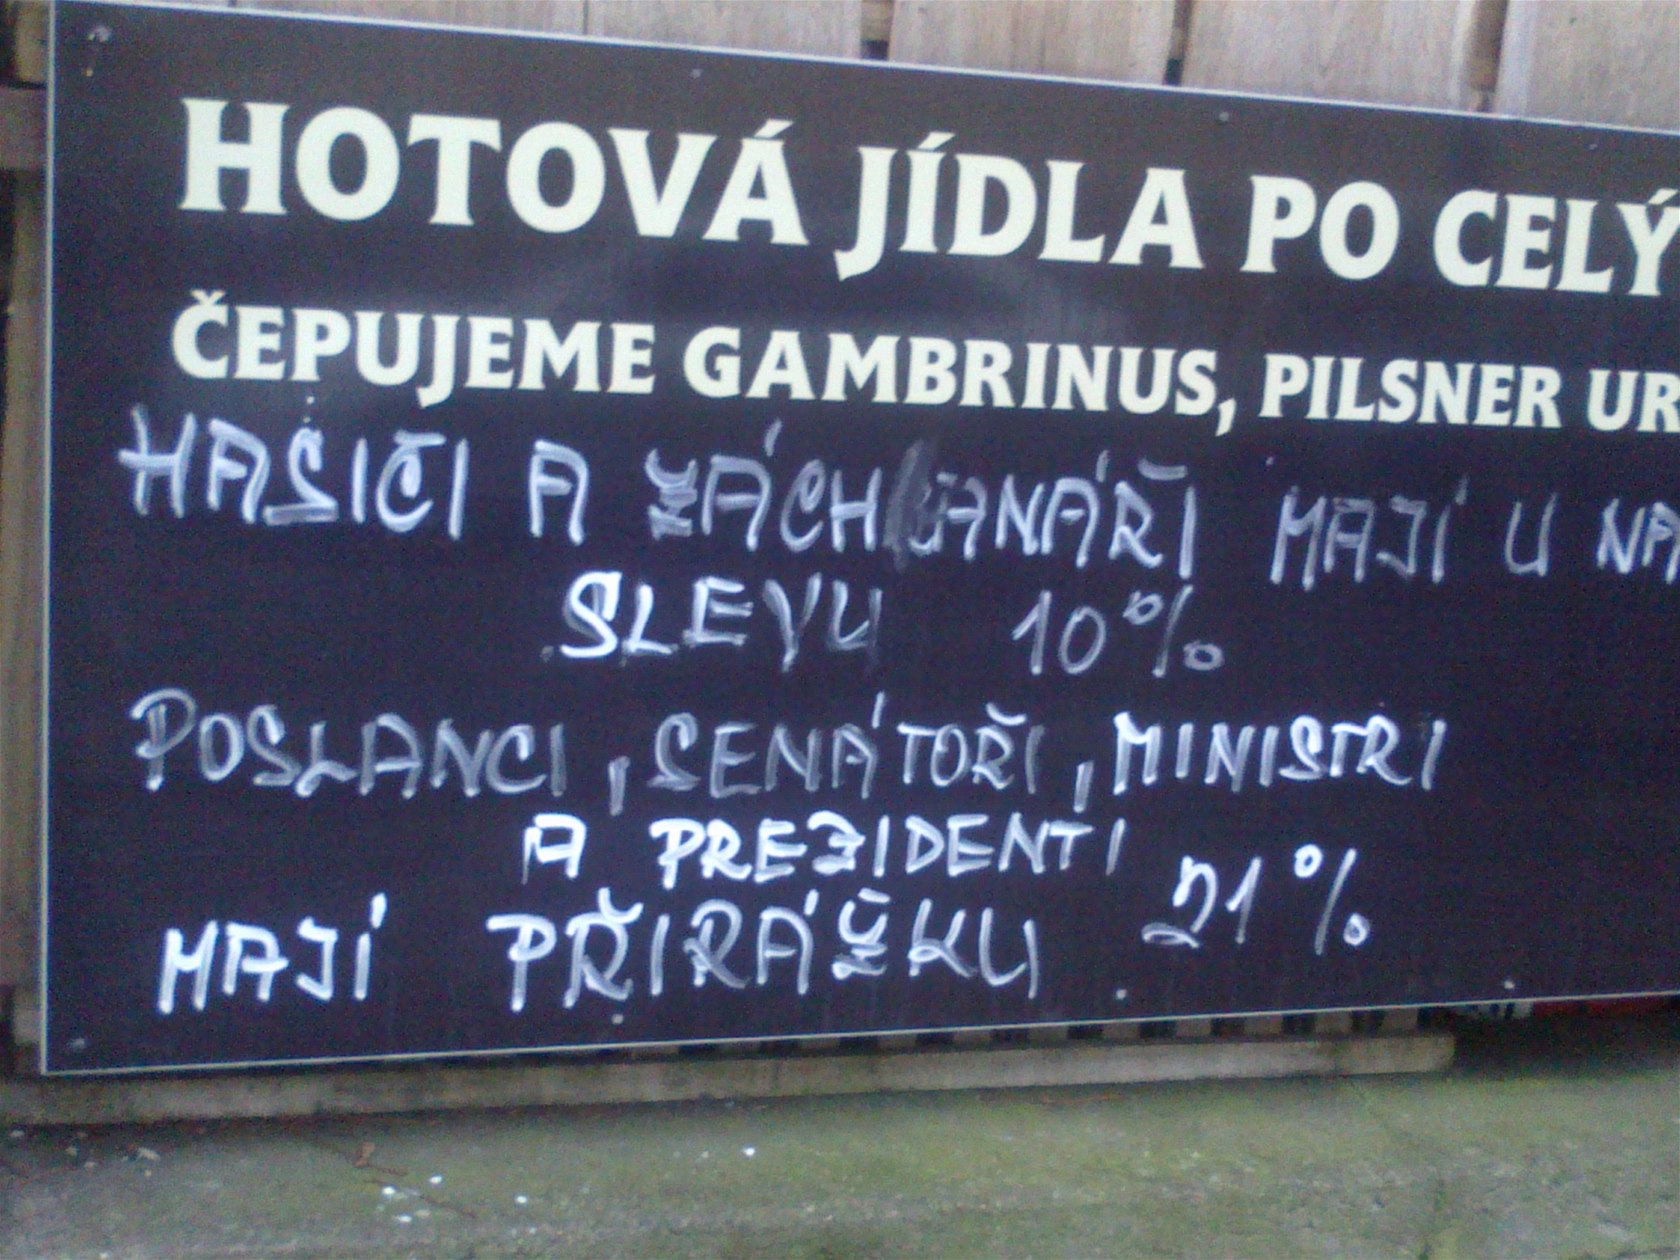 HOTOVÁ JÍDLA PO CELÝ
ČEPUJEME GAMBRINUS, PILSNER UR
HASIČI A ZÁCHRANÁŘI MAJÍ U NA
SLEVU 10%
POSLANCI, SENÁTOŘI, MINISTRI
A PREZIDENTI
MAJÍ PŘIRÁŽKU 21%